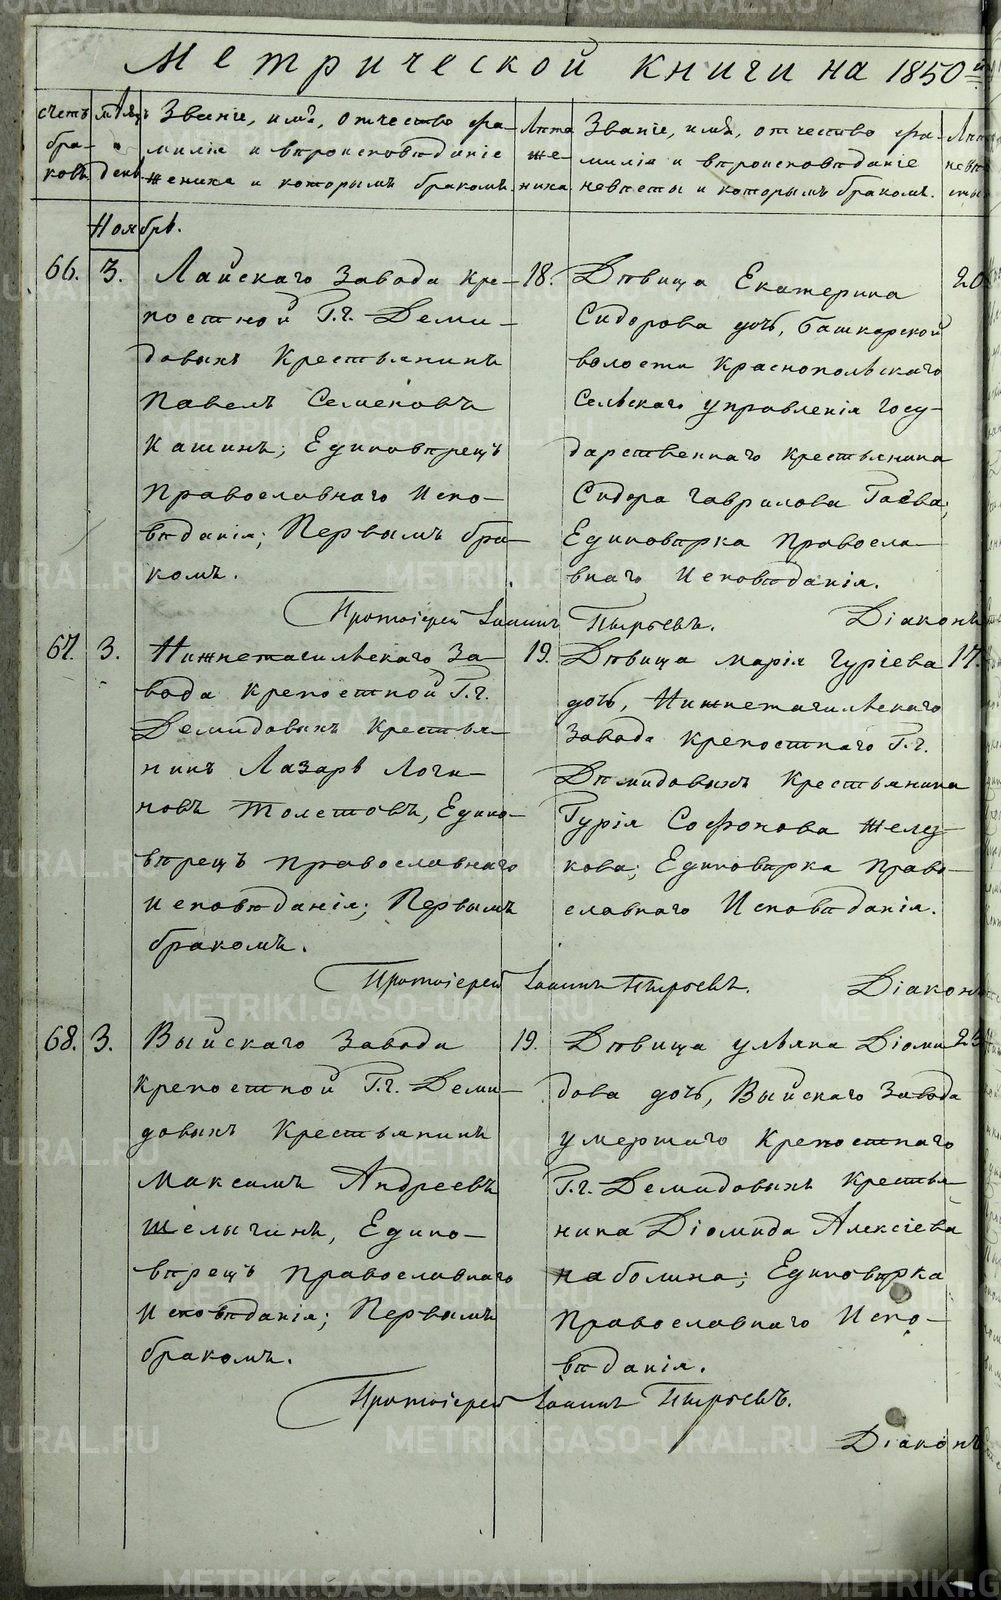 Метрической книги на 1850й
счетъ бра- ковъ
м-цъ и день
Званіе, имя, отчество фа-
милія и вѣроисповѣданіе
жениха и которымъ бракомъ
Лѣта
же-
ниха
Званіе, имя, отчество фа-
милія и вѣроисповѣданіе
невѣсты и которымъ бракомъ.
Лѣта
невѣ-
сты
Ноябрь.
66. 3.
Лайскаго Завода кре-
постной Г.г. Деми-
довыхъ Крестьянинъ
Павелъ Семеновъ
Кашинъ; Единовѣрецъ
Православнаго Испо-
вѣданія; Первымъ бра-
комъ.
18.
Дѣвица Екатерина
Сидорова дочь, Башкарской
волости Краснопольскаго
Сельскаго управленія Госу-
дарственнаго Крестьянина
Сидора Гаврилова Гаева;
Единовѣрка Правосла-
внаго Исповѣданія.
20
Протоіерей Іоаннъ Пырьевъ. Діаконъ
67. 3.
Нижнетагильскаго За-
вода Крепостной Г.г.
Демидовыхъ Крестья-
нинъ Лазарь Логи-
новъ Толстовъ, Едино-
вѣрецъ Православнаго
Исповѣданія; Первымъ
бракомъ.
19.
Дѣвица Марія Гуріева
дочь, Нижнетагильскаго
Завода Крепостнаго Г.г.
Демидовыхъ Крестьянина
Гурія Софонова Желез-
кова; Единовѣрка Право-
славнаго Исповѣданія.
17.
Протоіерей Іоаннъ Пырьевъ. Діаконъ
68. 3.
Выйскаго Завода
Крепостной Г.г. Деми-
довыхъ Крестьянинъ
Максимъ Андреевъ
Шелыгинъ, Едино-
вѣрецъ Православнаго
Исповѣданія; Первымъ
бракомъ.
19.
Дѣвица Ульяна Діоми-
дова дочь, Выйскаго Завода
умершаго Крепостнаго
Г.г. Демидовыхъ Крестья-
нина Діомида Алексіева
Наболина; Единовѣрка
Православнаго Испо-
вѣданія.
Протоіерей Іоаннъ Пырьевъ.
Діаконъ
METRIKI.GASO-URAL.RU